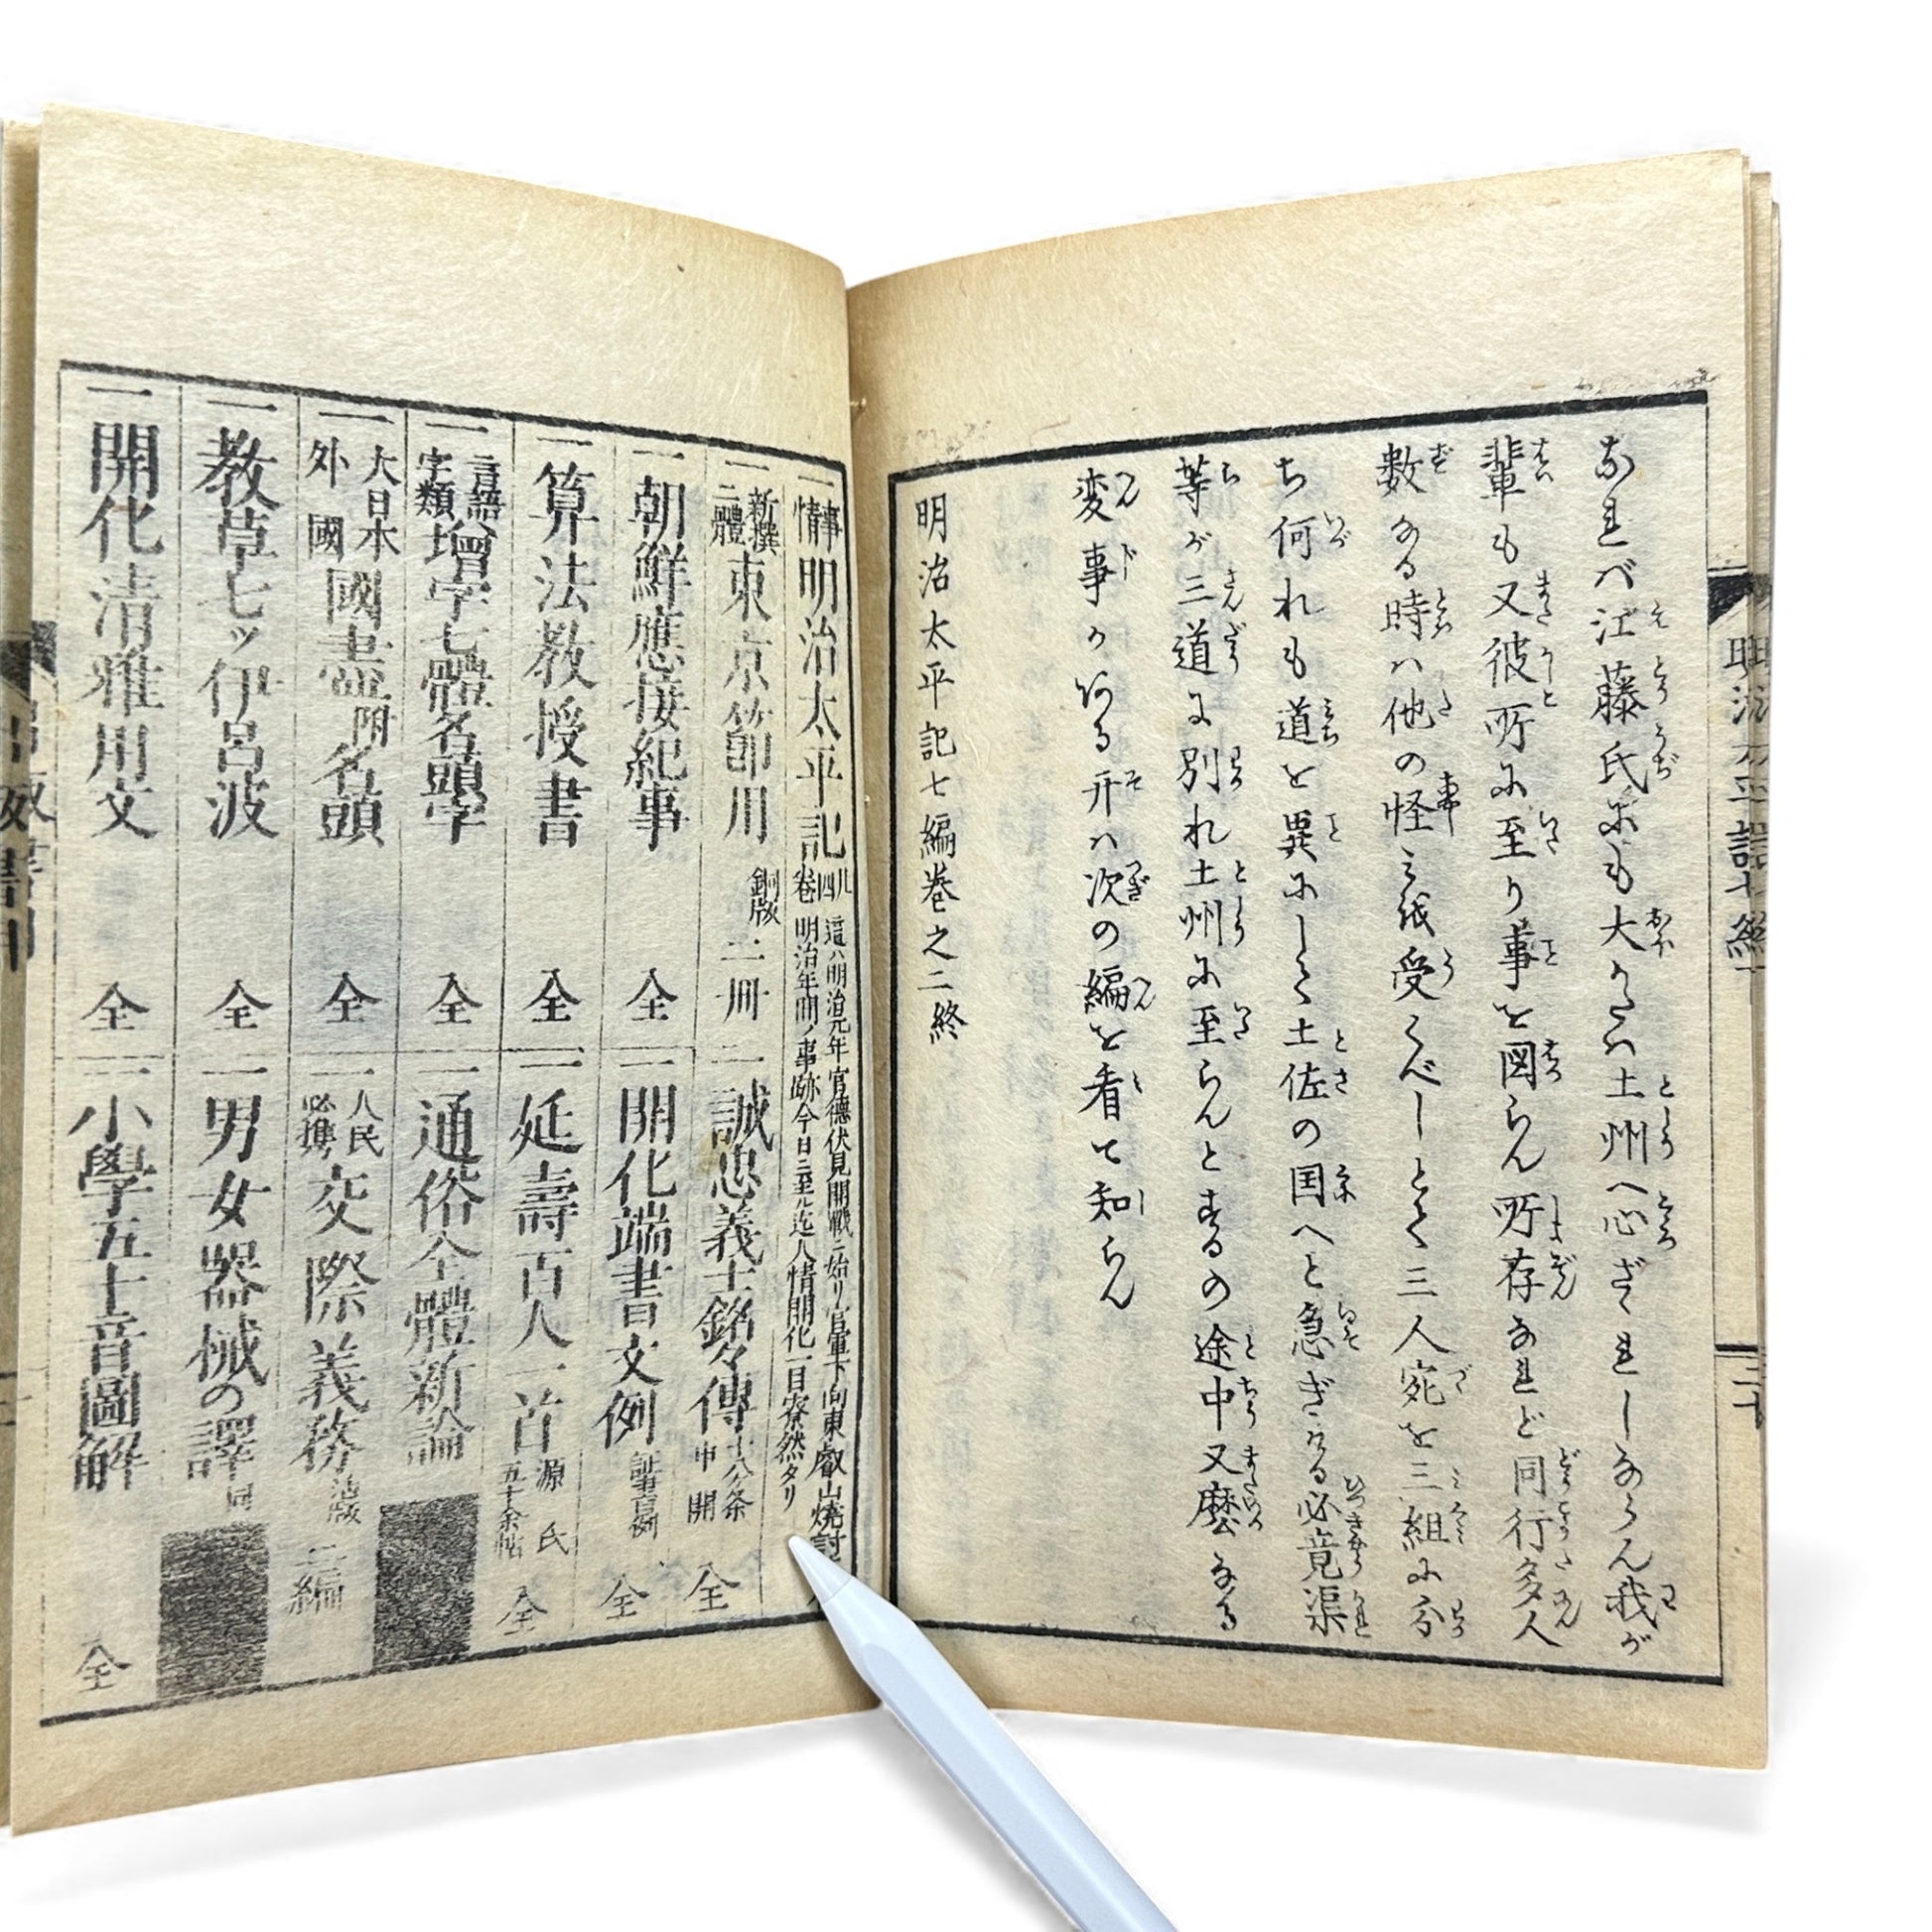 なれバ江藤氏等も大かたハ土州へ心ざされしならん我が
輩も又彼所に至り事を図らん所存なれど同行多人
数なる時ハ他の怪しミを受くべしとて三人宛を三組に分
ち何れも道を異にして土佐の国へと急ぎける必竟渠
等が三道に別れ土州に至らんとするの途中又麼なる
変事か有る开ハ次の編を看て知らん
明治太平記七編巻之二終
一事情明治太平記
這ハ明治元年官德伏見開戰ニ始リ官軍下向東叡山燒討
明治年間ノ事跡今日ニ至ル迄人情開化一目寮然タリ
一新撰二體東京節用 銅版二冊
一誠忠義士銘々傳 全
一朝鮮應接紀事 全
一開化端書文例 全
一算法教授書 全
一延壽百人一首 源氏五十余帖 全
一言語字類增字七體名頭字 全
一通俗全體新論
一大日本外國國盡附名頭 全
一人民必携交際義務 二編
一教草七ツ伊呂波 全
一男女器械の譯 同
一開化清雅用文 全
一小學五十音圖解 全